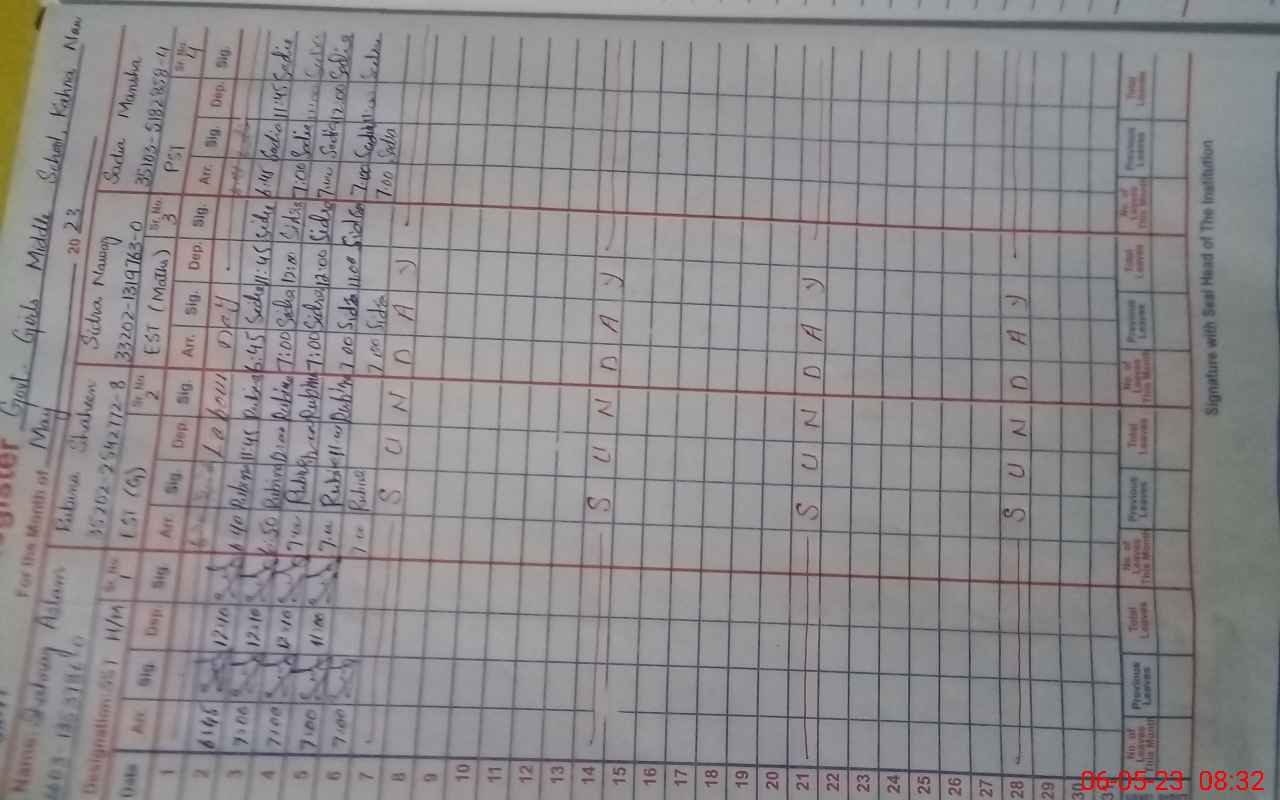 gister Govt. Girls Middle School, Kahna Nau
For the Month of May 2023
Name: Aslam
Rubina Shaheen
Sidra Nawaz
Sadia Mansha
35202-2542772-8
33202-1319763-0
35103-5182858-4
Designation: SST H/M Sr. No. 1
EST (G) Sr. No. 2
EST (Maths) Sr. No. 3
PST Sr. No. 4
Date Arr. Sig. Dep. Sig. Arr. Sig. Dep. Sig. Arr. Sig. Dep. Sig. Arr. Sig. Dep. Sig.
1 Labour Day
2 6:45 12:10 6:40 Rubina 11:45 Rubina 6:45 Sidra 11:45 Sidra 6:45 Sadia 11:45 Sadia
3 7:00 12:10 6:50 Rubina 12:00 Rubina 7:00 Sidra 12:00 Sidra 7:00 Sadia 11:00 Sadia
4 7:00 12:10 7:00 Rubina Rubina 7:00 Sidra 12:00 Sidra 7:00 Sadia 12:00 Sadia
5 7:00 11:00 7:00 Rubina 11:00 Rubina 7:00 Sidra 11:00 Sidra 7:00 Sadia 11:00 Sadia
6 7:00 7:00 Rubina 7:00 Sidra 7:00 Sadia
7 SUNDAY
8
9
10
11
12
13
14 SUNDAY
15
16
17
18
19
20
21 SUNDAY
22
23
24
25
26
27
28 SUNDAY
29
30
31
No. of Leaves This Month Previous Leaves Total Leaves No. of Leaves This Month Previous Leaves Total Leaves No. of Leaves This Month Previous Leaves Total Leaves No. of Leaves This Month Previous Leaves Total Leaves
Signature with Seal Head of The Institution
06-05-23 08:32